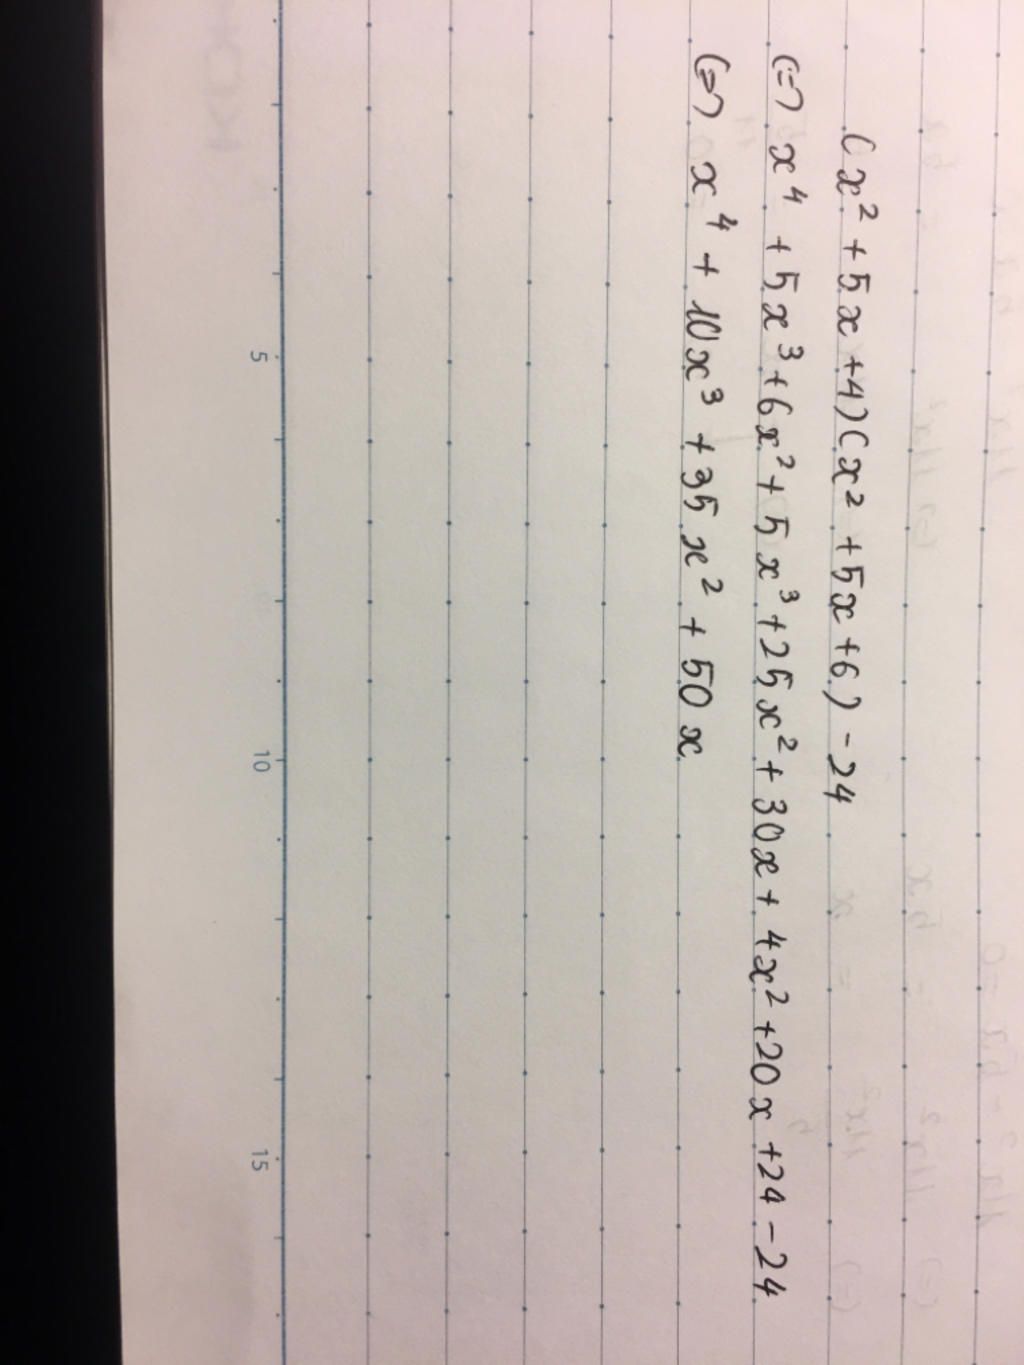 (x² + 5x + 4)(x² + 5x + 6) - 24
(=) x⁴ + 5x³ + 6x² + 5x³ + 25x² + 30x + 4x² + 20x + 24 - 24
(=) x⁴ + 10x³ + 35x² + 50x
5
10
15